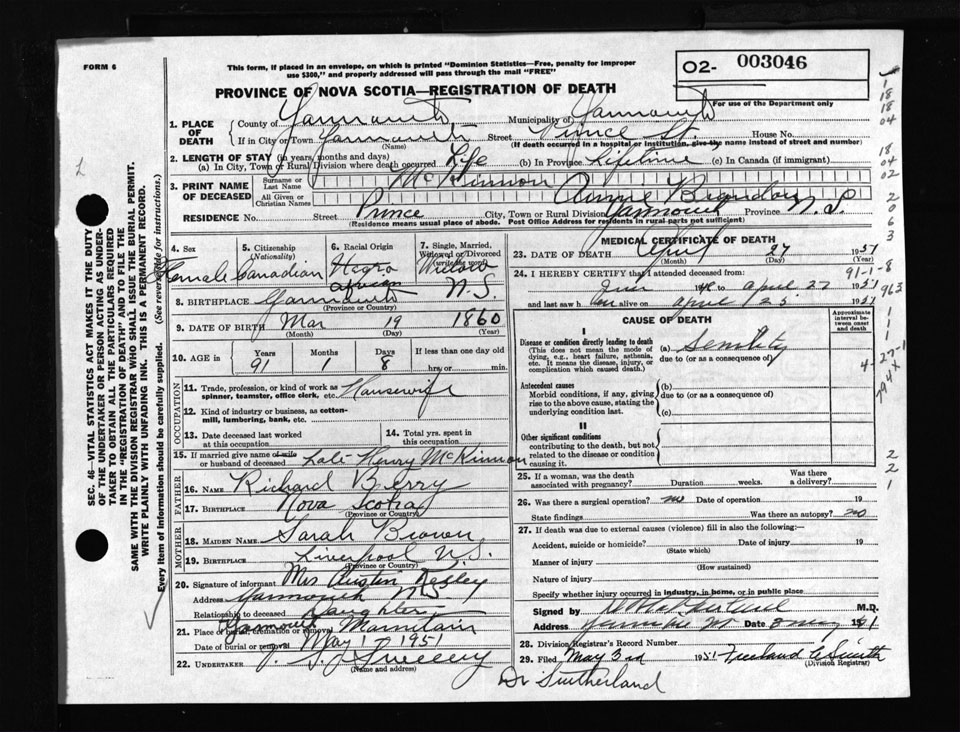 FORM 6
This form, if placed in an envelope, on which is printed "Dominion Statistics—Free, penalty for improper
use $300," and properly addressed will pass through the mail "FREE"
02- 003046
For use of the Department only
PROVINCE OF NOVA SCOTIA—REGISTRATION OF DEATH
1. PLACE OF DEATH
County of Yarmouth Municipality of Yarmouth
If in City or Town Yarmouth Street Prince St. House No.
(Name) (If death occurred in a hospital or institution, give the name instead of street and number)
2. LENGTH OF STAY (in years, months and days)
(a) In City, Town or Rural Division where death occurred Life (b) In Province Lifetime (c) In Canada (if immigrant)
3. PRINT NAME OF DECEASED
Surname or Last Name McKinnon
All Given or Christian Names Annie
RESIDENCE No. Street Prince City, Town or Rural Division Yarmouth Province N.S.
(Residence means usual place of abode. Post Office Address for residents in rural parts not sufficient)
4. Sex
Female
5. Citizenship
(Nationality)
Canadian
6. Racial Origin
Negro
African
7. Single, Married,
Widowed or Divorced
(write the word)
Widow
8. BIRTHPLACE Yarmouth N.S.
(Province or Country)
9. DATE OF BIRTH Mar 19 1860
(Month) (Day) (Year)
10. AGE in
Years Months Days If less than one day old
91 1 8 hrs. or min.
OCCUPATION
11. Trade, profession, or kind of work as
spinner, teamster, office clerk, etc. Housewife
12. Kind of industry or business, as cotton-
mill, lumbering, bank, etc.
13. Date deceased last worked
at this occupation
14. Total yrs. spent in
this occupation
15. If married give name of wife
or husband of deceased Late Henry McKinnon
FATHER
16. NAME Richard Berry
17. BIRTHPLACE Nova Scotia
(Province or Country)
MOTHER
18. MAIDEN NAME Sarah Brown
19. BIRTHPLACE Liverpool N.S.
(Province or Country)
20. Signature of informant Mrs Austin
Address Yarmouth N.S.
Relationship to deceased Daughter
21. Place of burial, cremation or removal Yarmouth Mountain
Date of burial or removal May 1951
22. UNDERTAKER Sweeney
(Name and address)
MEDICAL CERTIFICATE OF DEATH
23. DATE OF DEATH April 27 1951
(Month) (Day)
24. I HEREBY CERTIFY that I attended deceased from:
to April 27 1951
and last saw h er alive on April 25 1951
CAUSE OF DEATH
Approximate
interval be-
tween onset
and death
I
Disease or condition directly leading to death
(This does not mean the mode of
dying, e.g., heart failure, asthenia,
etc. It means the disease, injury, or
complication which caused death.)
(a) Senility
due to (or as a consequence of)
Antecedent causes
Morbid conditions, if any, giving
rise to the above cause, stating the
underlying condition last.
(b)
due to (or as a consequence of)
(c)
II
Other significant conditions
contributing to the death, but not
related to the disease or condition
causing it.
25. If a woman, was the death
associated with pregnancy? Duration weeks. Was there
a delivery?
26. Was there a surgical operation? no Date of operation 19
State findings Was there an autopsy? no
27. If death was due to external causes (violence) fill in also the following:—
Accident, suicide or homicide? Date of injury 19
(State which)
Manner of injury
(How sustained)
Nature of injury
Specify whether injury occurred in industry, in home, or in public place
Signed by M.D.
Address Date
28. Division Registrar's Record Number
29. Filed May 3rd 1951 Freeland Smith
(Division Registrar)
Dr Sutherland
SEC. 46—VITAL STATISTICS ACT MAKES IT THE DUTY
OF THE UNDERTAKER OR PERSON ACTING AS UNDER-
TAKER TO OBTAIN ALL THE PARTICULARS REQUIRED
IN THE "REGISTRATION OF DEATH" AND TO FILE THE
SAME WITH THE DIVISION REGISTRAR WHO SHALL ISSUE THE BURIAL PERMIT.
WRITE PLAINLY WITH UNFADING INK. THIS IS A PERMANENT RECORD.
Every item of Information should be carefully supplied. (See reverse side for instructions.)
1
18
18
04
18
04
02
2
0
6
3
91-1-8
963
1
1
1
4-27-1
794X
2
2
1